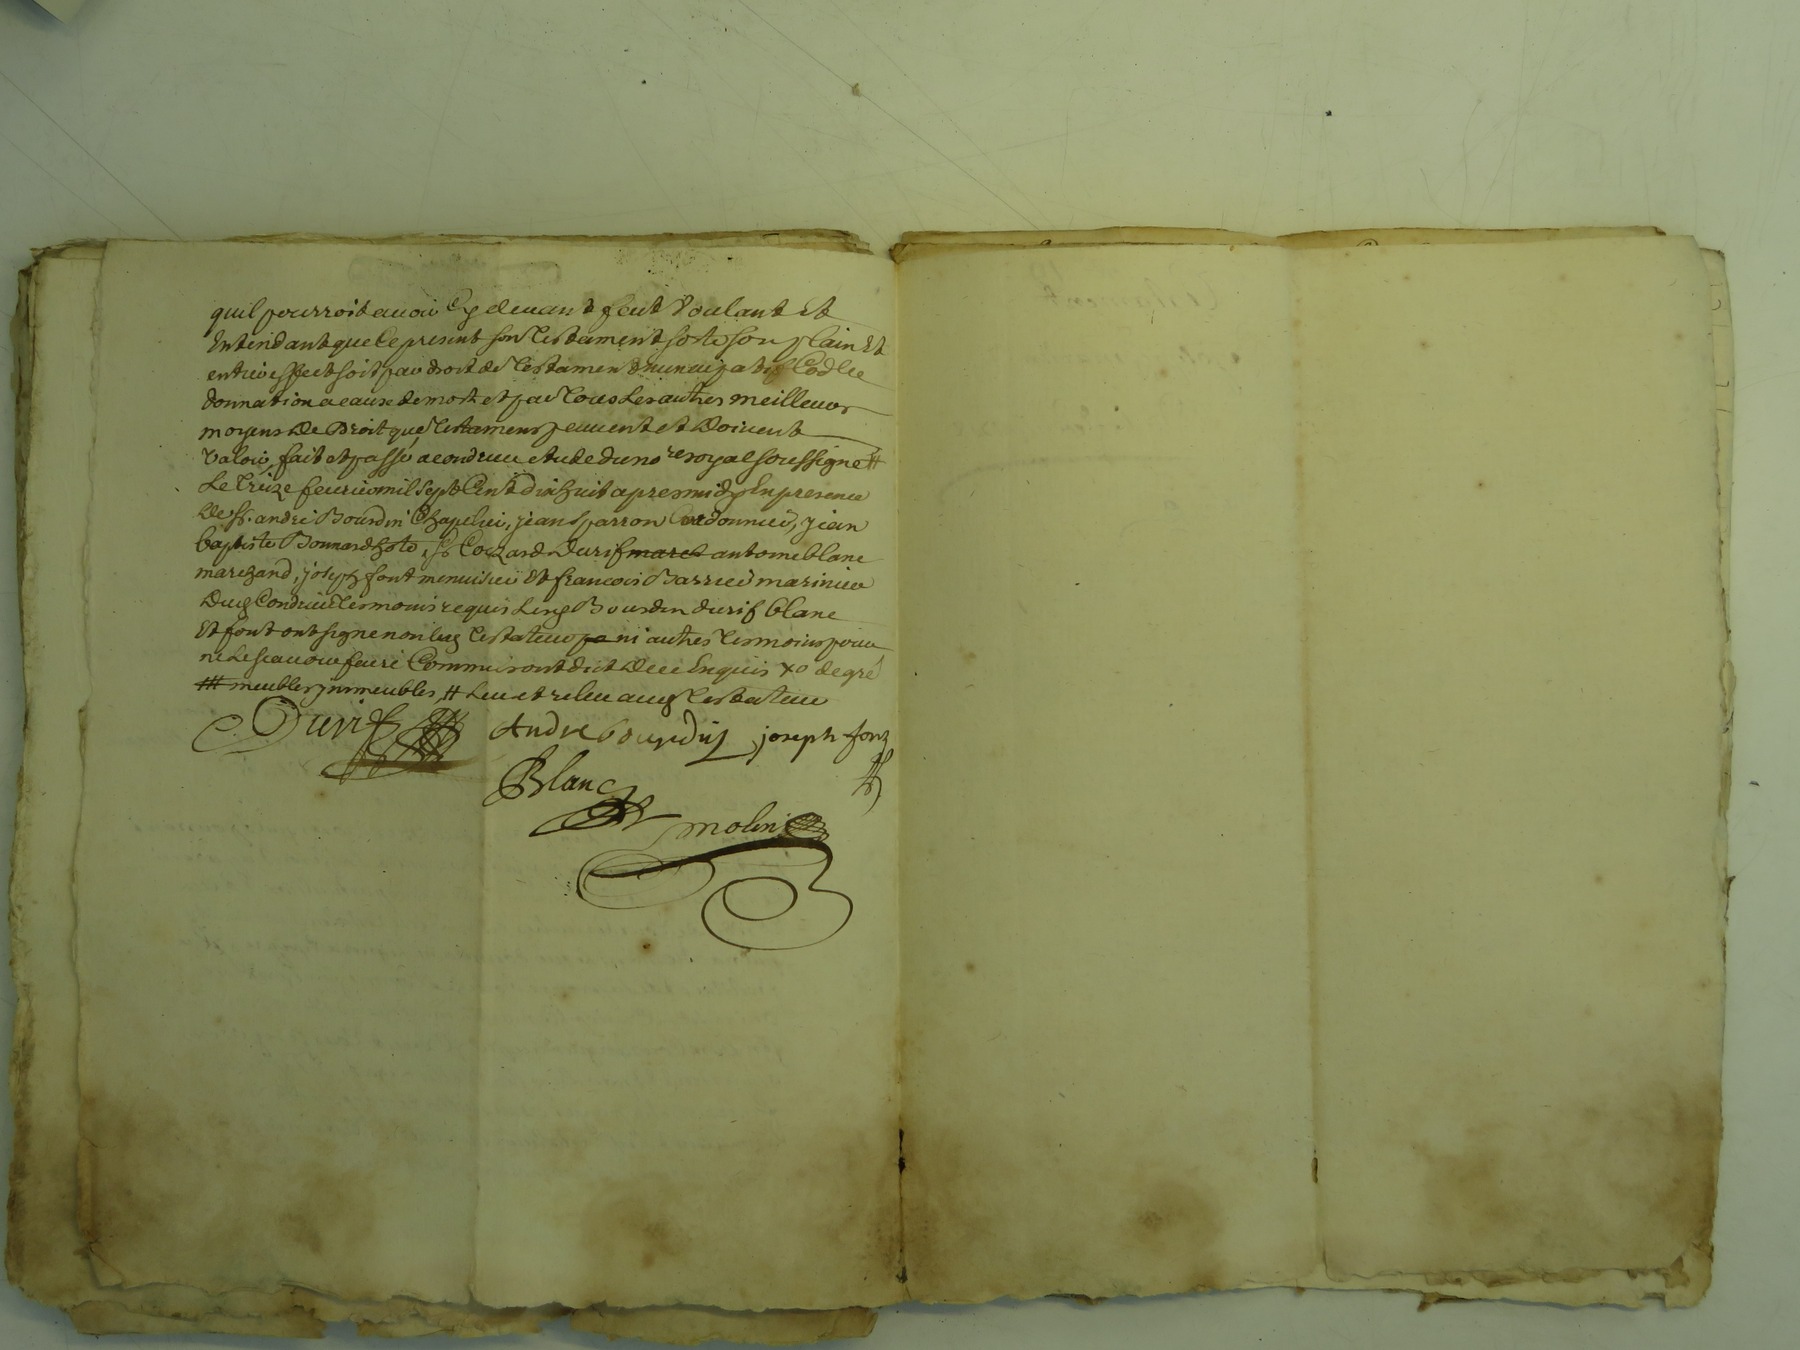 quil pourroit auoir Cy deuant feit Voulant Et
Entendant que Ce present son Testament sorte son plain Et
entier effect soit par droit de Testament nuncupatif Codlle
donnation a cause de mort et par Tous Les autres meilleurs
moyens De Droit que Testamens peuuent et Doiuent
Valoir, fait et passé a condrieu etude du nore royal soussigne #
Le Treize feurier mil Sept Cent dixhuit apres midy En presence
De sr. andré Bourdin Chapelier, jean parron Cordonnier, jean
baptiste Bonnard hote, sr Durif marct antoine blanc
marchand, joseph font menuisier Et francois Barrier marinier
Dud Condrieu Tesmoins requis Lesd Bourdin durif blanc
Et font ont signe non led Testateur pa ni autres Tesmoins pour
ne Le scauoir faire Comme ont dit De ce Enquis xo de gré
### meubles jmmeubles, # Leu et releu aud Testateur
Durif André bourdin joseph font
Blanc
molin